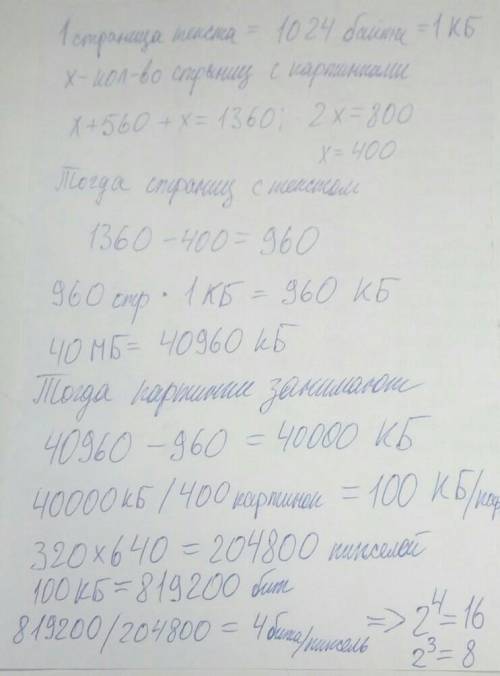 1 страница текста = 1024 байта = 1 КБ
х - кол-во страниц с картинками
х + 560 + х = 1360; 2х = 800
х = 400
Тогда страниц с текстом
1360 - 400 = 960
960 стр · 1 КБ = 960 КБ
40 МБ = 40960 КБ
Тогда картинки занимают
40960 - 960 = 40000 КБ
40000 КБ / 400 картинок = 100 КБ/кар
320 х 640 = 204800 пикселей
100 КБ = 819200 бит
819200 / 204800 = 4 бита/пиксель => 2^4 = 16
2^3 = 8